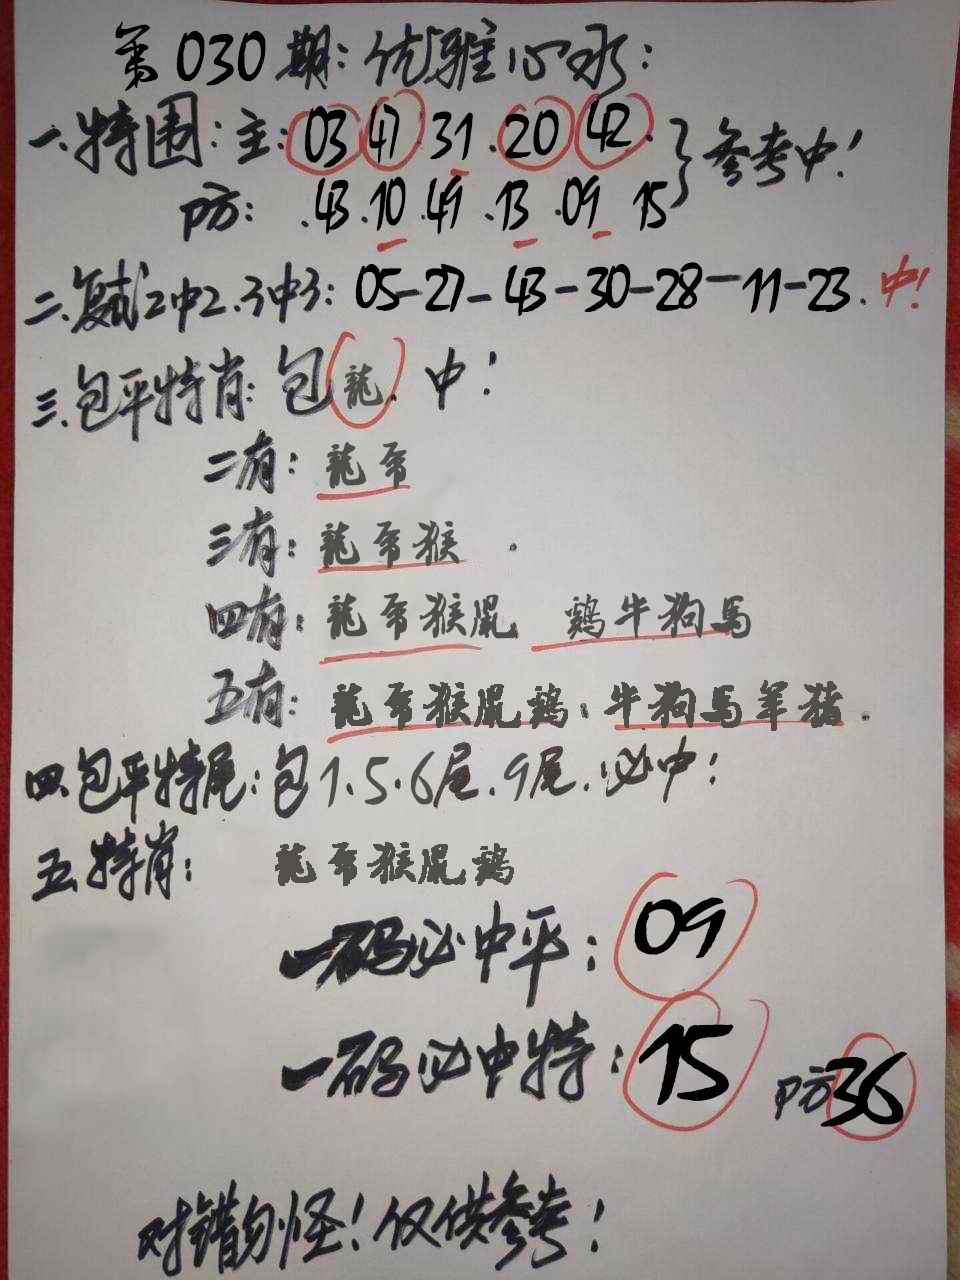 第030期：优雅心水：
一.特围：主：03.47.31.20.42.
防：.43.10.49.13.09 15 } 参考中！
二.复试2中2.3中3：05-27-43-30-28-11-23.中！
三.包平特肖：包龍.中！
二有：龍
三有：龍 猴.
四有：龍 猴鼠 鷄牛狗馬
五有：龍 猴鼠鷄：牛狗馬羊猪.
四.包平特尾：包1.5.6尾.9尾.必中！
五.特肖：龍 猴鼠鷄
一码必中平：09
一码必中特：15 防36
对错勿怪！仅供参考！